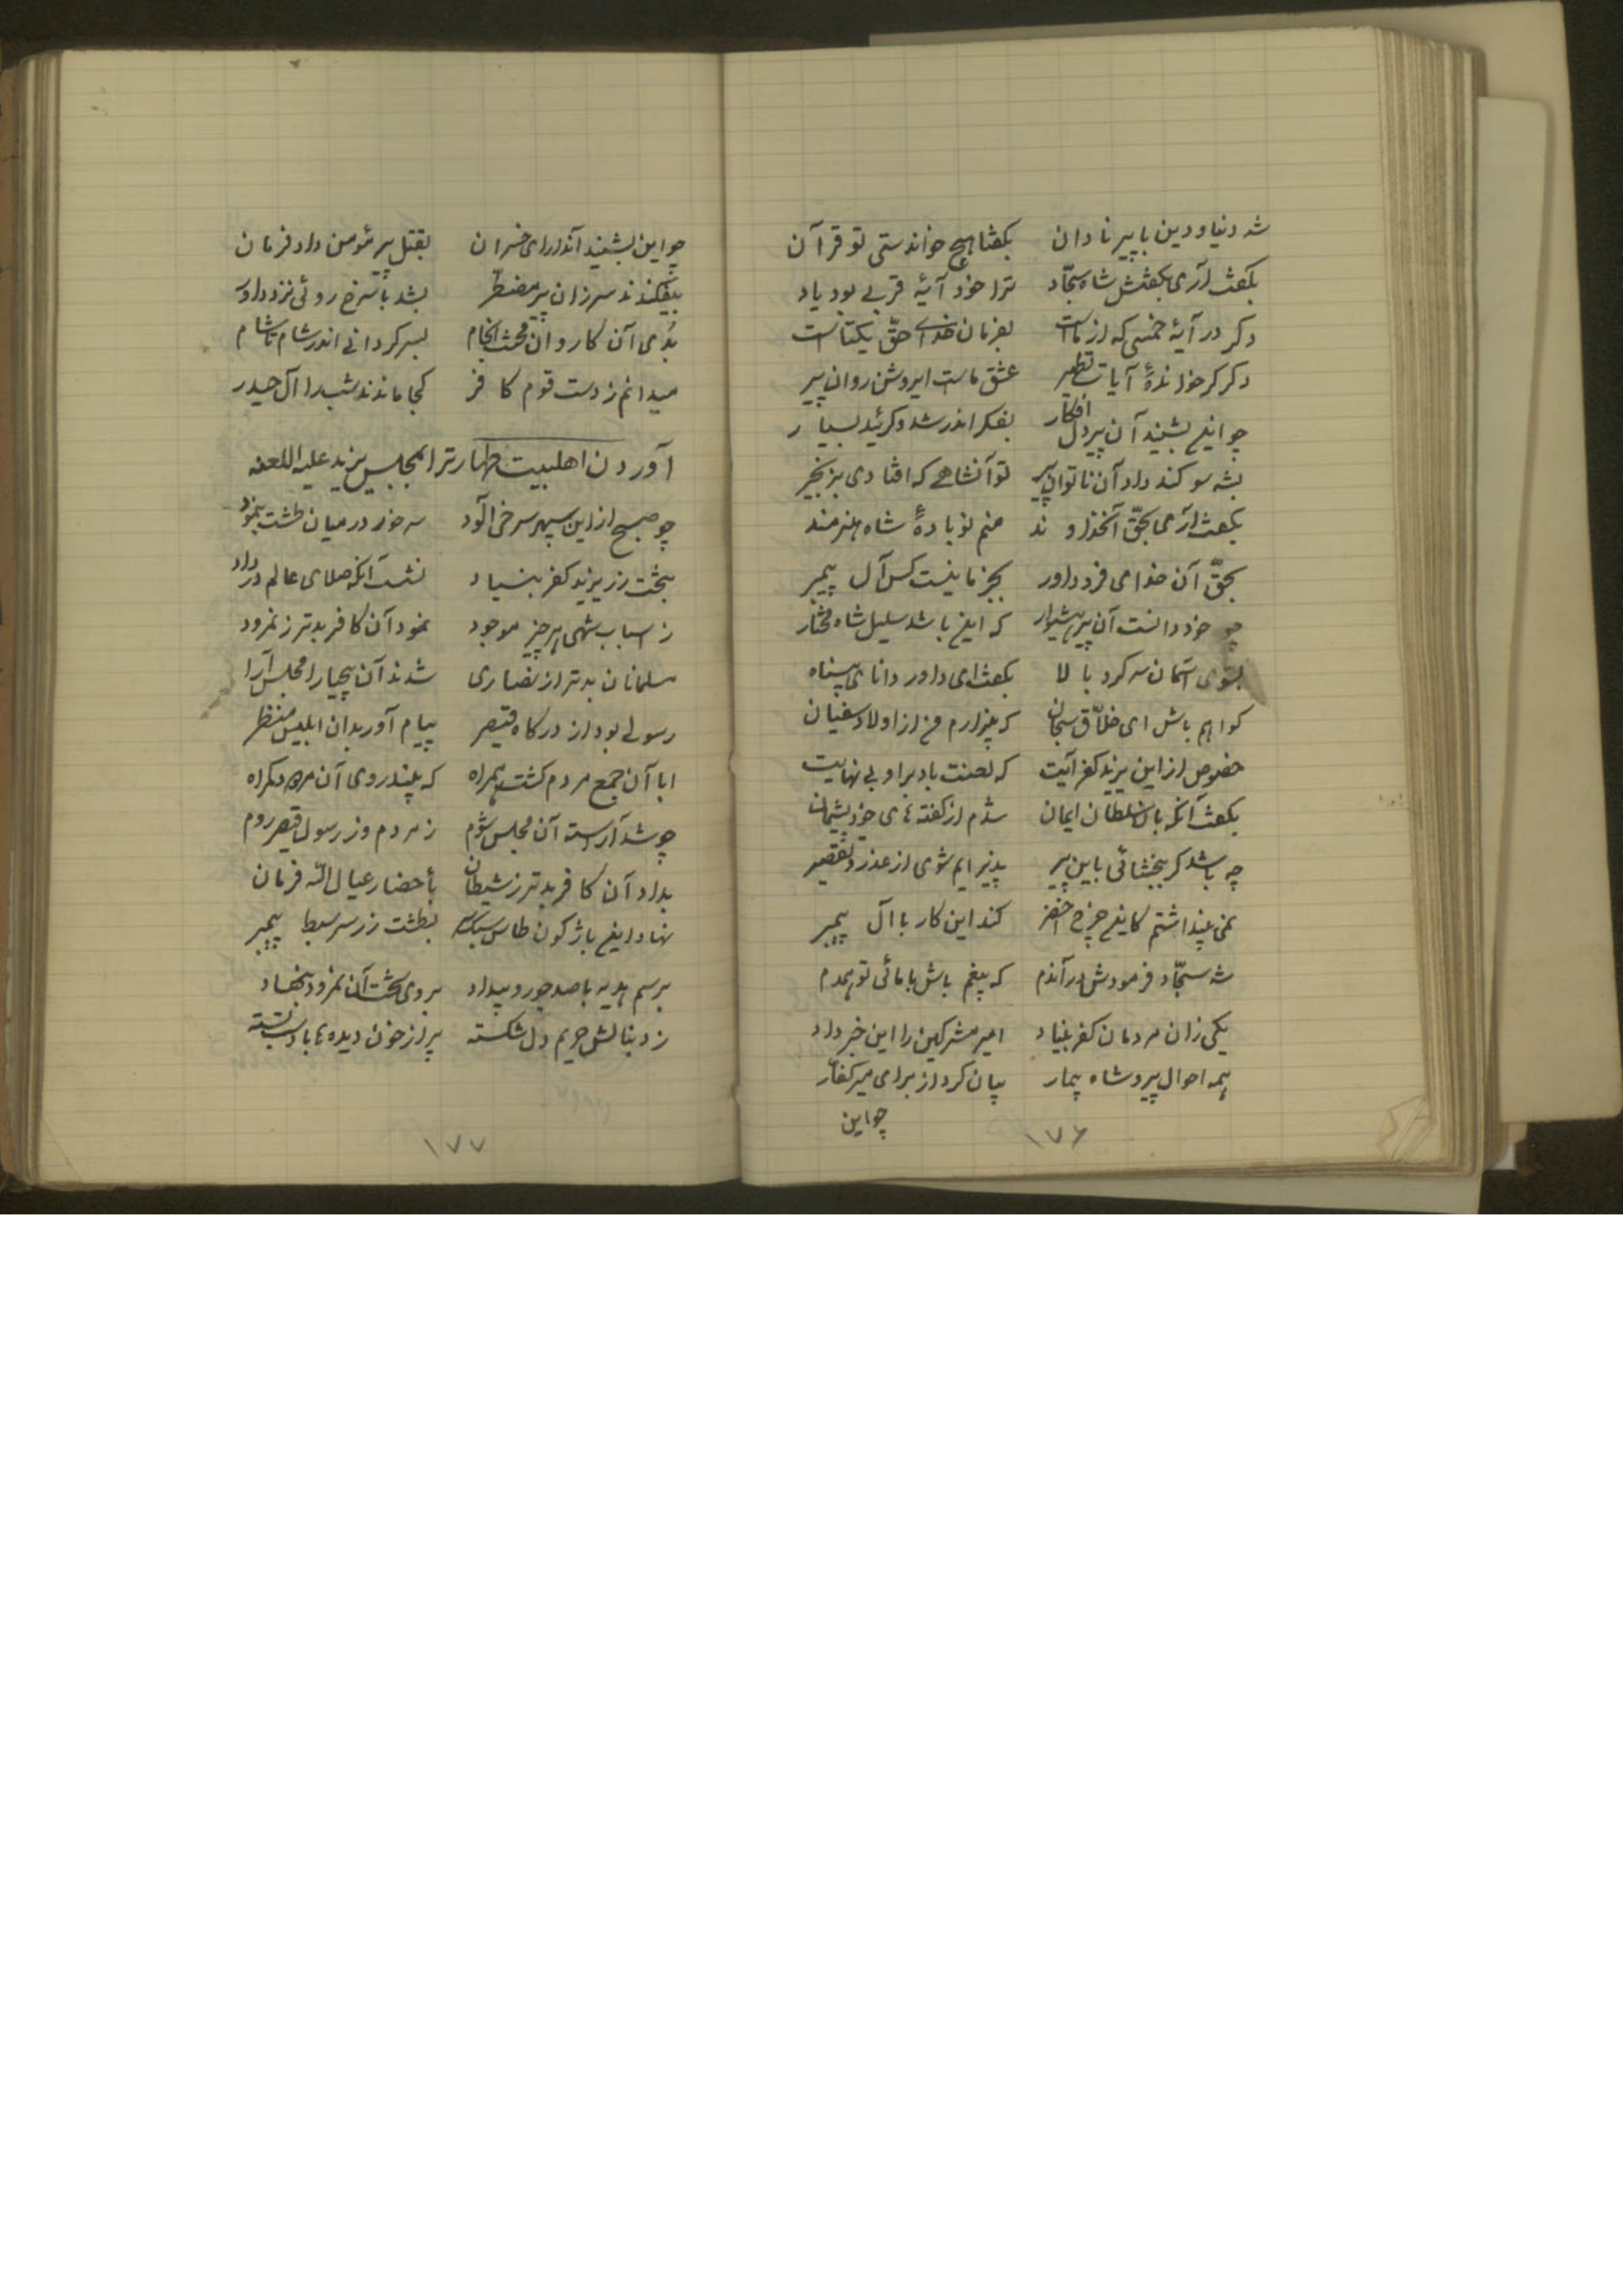 شه دنیا و دین با پیر نادان بگفتا هیچ خواندستی تو قرآن
بگفت آری بگفتش شاه سجّاد ترا خود آیهٔ قربی بود یاد
دگر در آیهٔ خمسی که از ماست بفرمان خدای حقّ یکتاست
دگر گر خواندهٔ آیات تطهیر بحق ماست ای روشن روان پیر
چو اینها بشنید آن پیر دل افکار بفکر اندر شد و گرئید بسیار
بشه سوگند داد آن ناتوان پیر تو آنشاهی که افتادی بزنجیر
بگفت آری بحقّ آنخداوند منم نوبادهٔ شاه هنرمند
بحقّ آن خدای فرد داور بجز ما نیست کس آل پیمبر
چو خود دانست آن پیر هشیوار که اینها باشد سلیل شاه مختار
بسوی آسمان سر کرد بالا بگفت ای داور دانای
گواهم باش ای خلّاق سبحان که بیزارم من از اولاد سفیان
خصوص از این یزید کفر آیت که لعنت باد بر او بی نهایت
بگفت آنگه با سلطان ایمان شدم از گفته‌های خود پشیمان
چه باشد گر ببخشائی باین پیر پذیرایم شوی از عذر و تقصیر
نمی پنداشتم کاینها چرخ اخضر کند این کار با آل پیمبر
شه سجّاد فرمودش در آندم که بیغم باش با مائی تو همدم
یکی زان مردمان کفر بنیاد امیر مشرکین را این خبر داد
همه احوال پیر و شاه بیمار بیان کرد از برای میر کفّار
چو این
۱۷۶
چو این بشنید آندارای خسران بقتل پیر مؤمن داد فرمان
بیفکندند سر زان پیر مضطر بشد با سرخ روئی نزد داور
بُدی آن کاروان محنت انجام بسر گردانی اندر شام تا شام
نمیدانم ز دست قوم کافر کجا ماندند شب را آل حیدر
آوردن اهلبیت طهارترا بمجلس یزید علیه اللعنه
چو صبح از این سپهر سرخی آلود سر خور در میان طشت بنمود
بتخت زر یزید کفر بنیاد نشست آنگه صلای عالم در داد
ز اسباب شهی هر چیز موجود نمود آن کافر بدتر ز نمرود
مسلمانان بدتر از نصاری شدند آن بیحیا را مجلس آرا
رسولی بود از درگاه قیصر پیام آور بدان ابلیس منظر
ابا آن جمع مردم گشت همراه که بیند روی آن گمراه
چو شد آراسته آن مجلس شوم ز مردم وز رسول قیصر روم
بداد آن کافر بدتر ز شیطان بأحضار عیال اللّه فرمان
نهاد اینها باژگون طاس بطشت زر سر سبط پیمبر
برسم هدیه با صد جور و بیداد بروی تخت آن نمرود بنهاد
ز دنبالش حریم دل شکسته پر از خون دیده‌ها بازو
۱۷۷